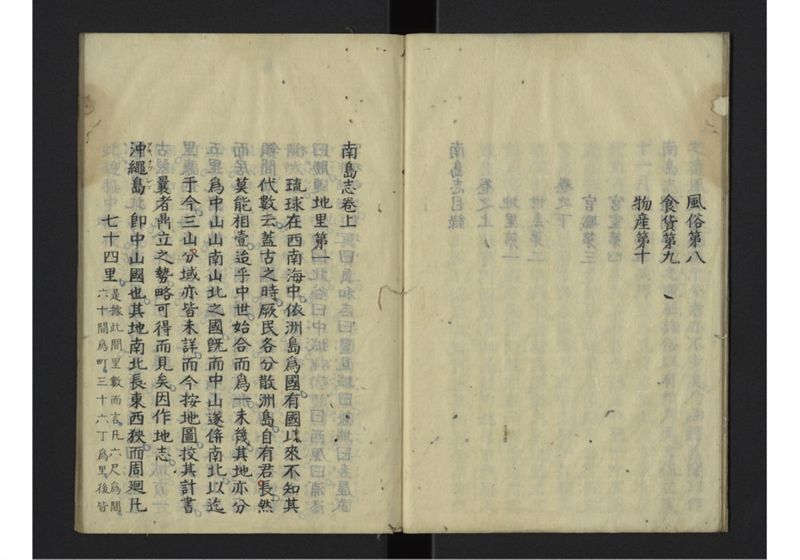 風俗第八
食貨第九
物産第十
南島志卷上
地里第一
琉球在西南海中依洲島爲國有國以來不知其
代數云蓋古之時厥民各分散洲島自有君長然
而居莫能相壹迨乎中世始合而爲一未幾其地亦分
爲中山山南山北之國既而中山遂併南北以迄
于今三山分域亦皆未詳而今按地圖按其計書
曩者鼎立之勢略可得而見矣因作地志
沖繩島 卽中山國也其地南北長東西狹而周廻凡
七十四里 是據此間里數而言凡六尺爲間
六十間爲町三十六丁爲里後皆